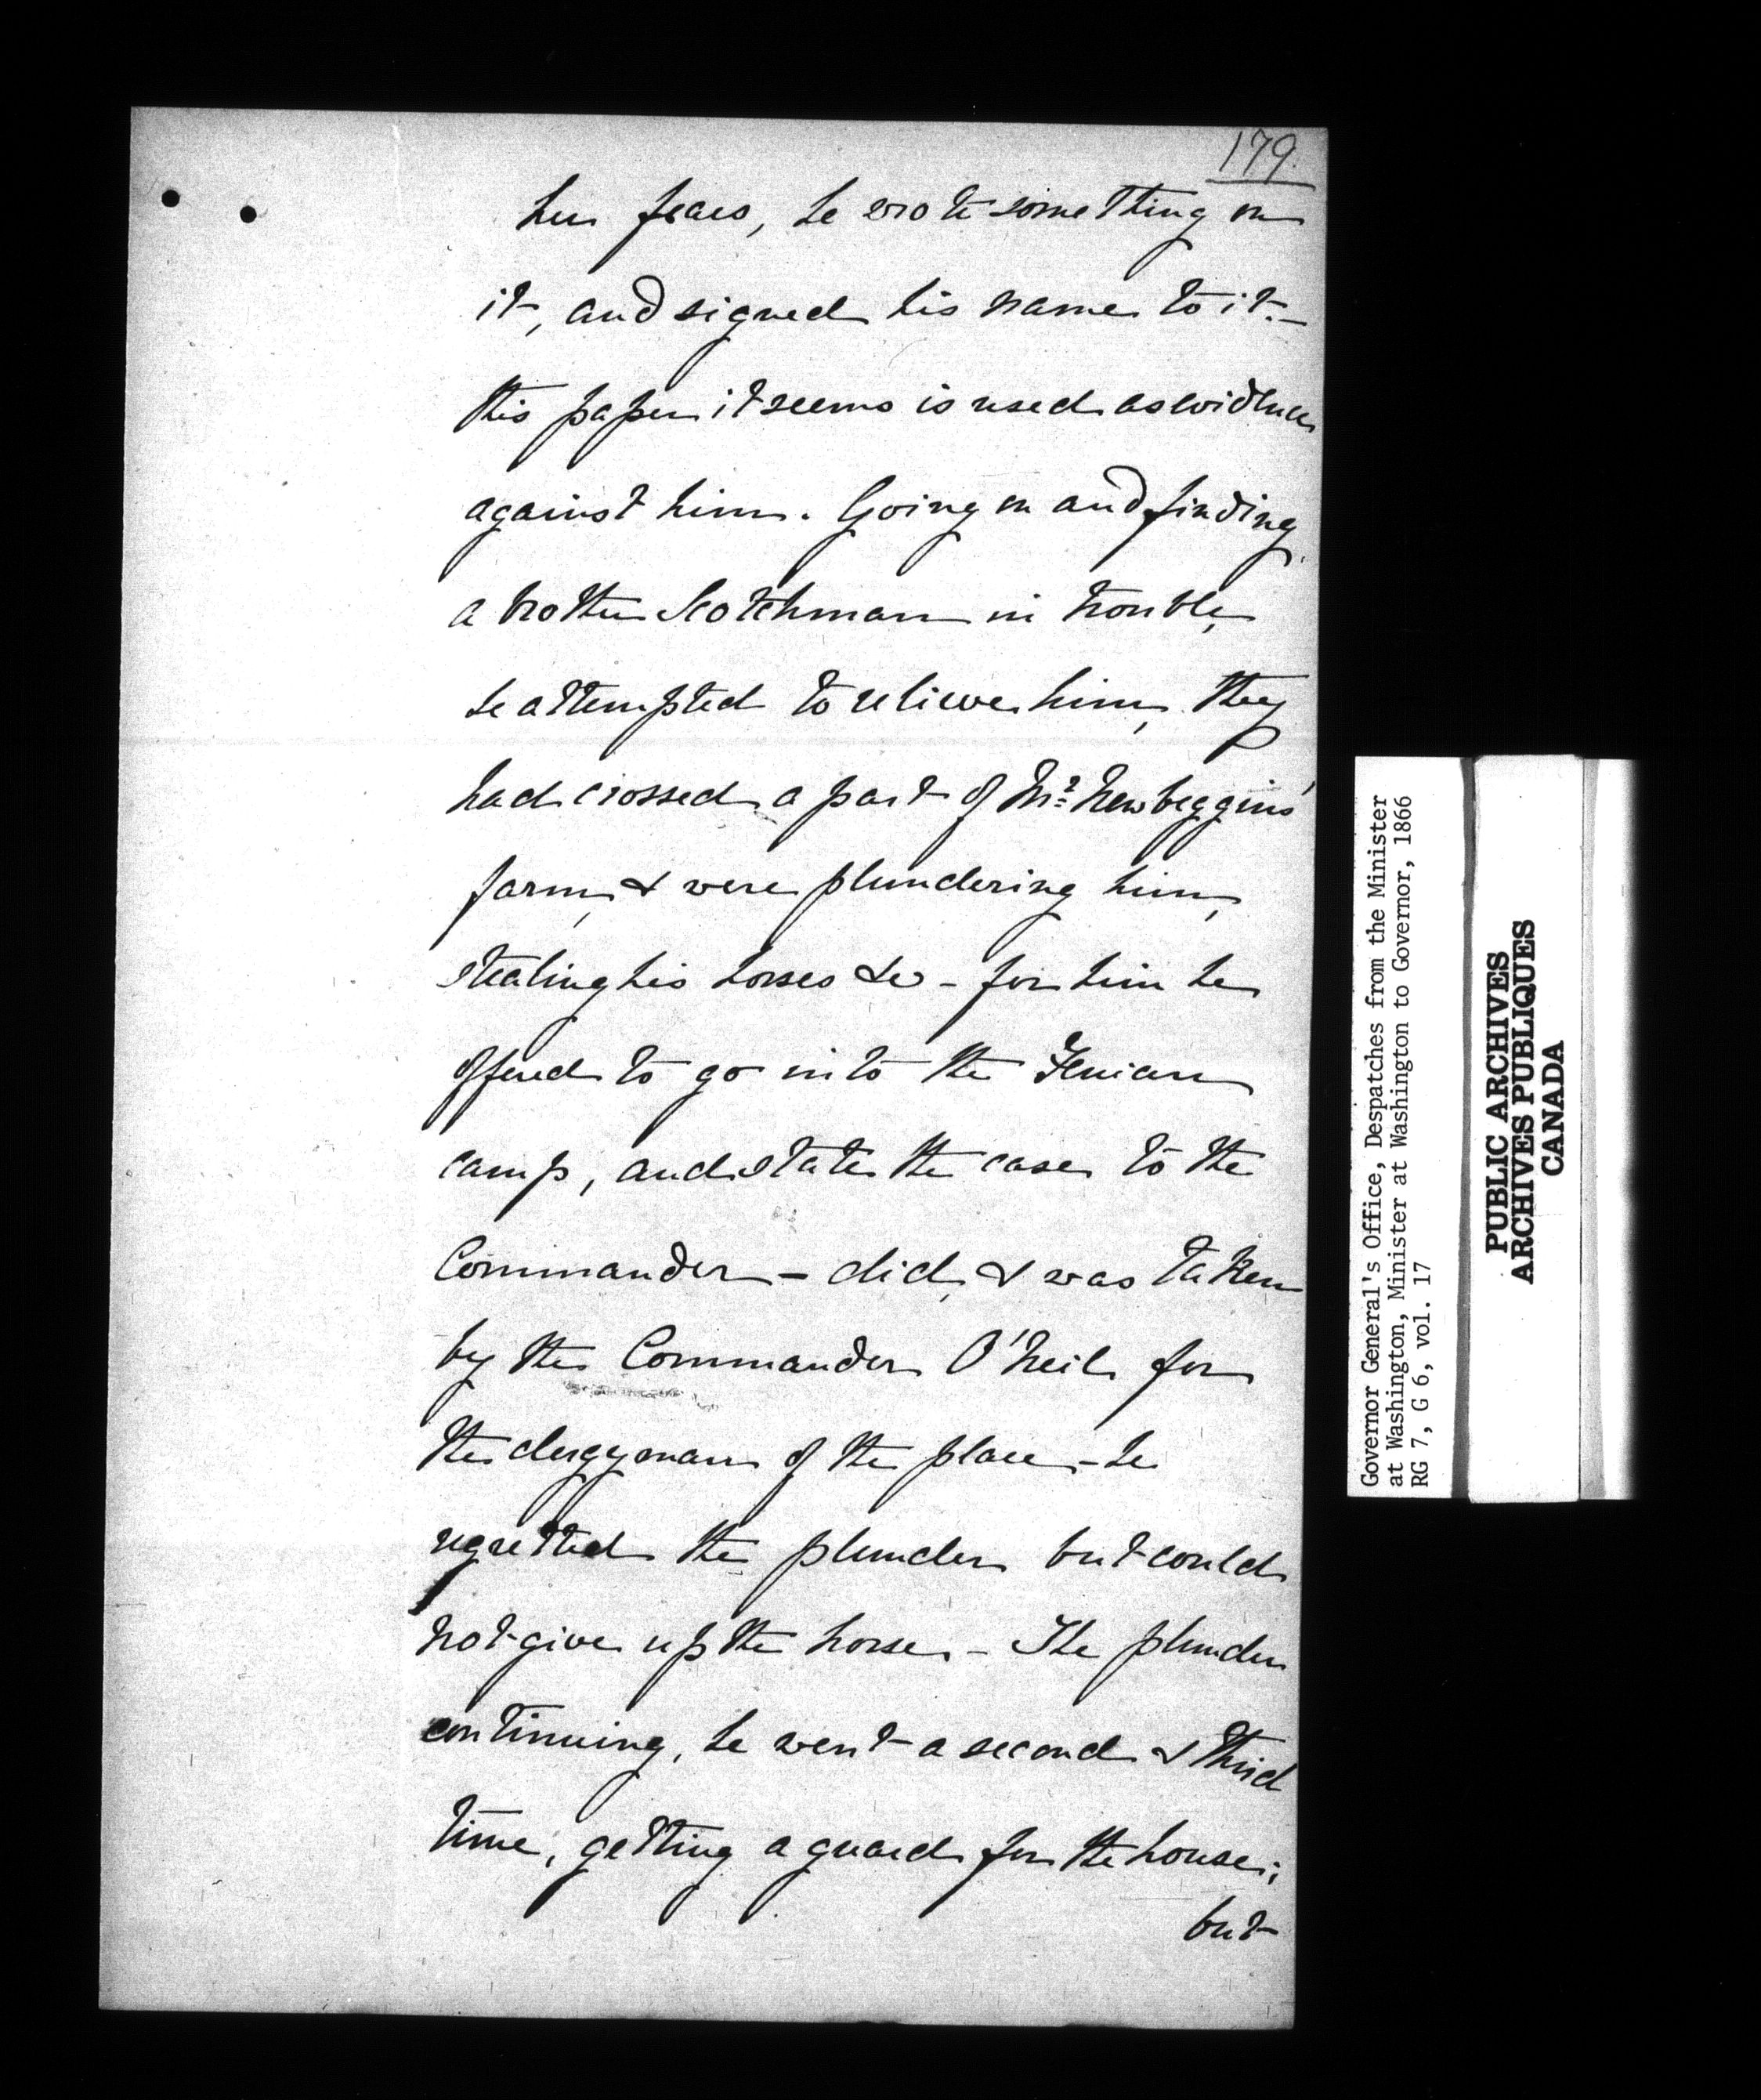 179.
her fears, he wrote something on
it, and signed his name to it. –
this paper it seems is used as evidence
against him. Going on and finding
a brother Scotchman in trouble,
he attempted to relieve him, they
had crossed a part of Mr. Newbeggins'
farm, & were plundering him,
stealing his horses &c – for him he
offered to go into the Fenian
camp, and state the case to the
Commander – did, & was taken
by the Commander O'Neil for
the clergyman of the place – he
regretted the plunder but could
not give up the horse – The plunder
continuing, he went a second & third
time, getting a guard for the house;
but
Governor General's Office, Despatches from the Minister
at Washington, Minister at Washington to Governor, 1866
RG 7, G 6, vol. 17
PUBLIC ARCHIVES
ARCHIVES PUBLIQUES
CANADA